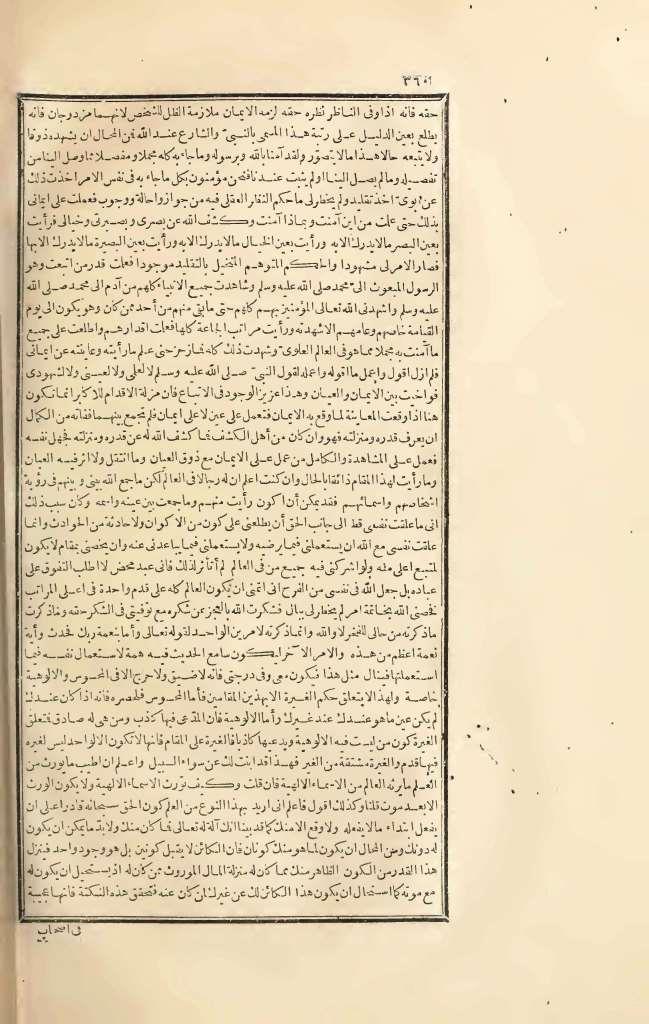 ٣٦٠
حقه فانه اذا وفى الناظر نظره حقه لزمه الايمان ملازمة الظل للشخص لانهما مزدوجان فانه
يطلع بعين الدليل على رتبة هذا المسمى بالنبى والشارع عند الله فمن المحال ان يشهده ذوقا
ولا يتبعه حالا هذا ما لا يتصور ولقد آمنا بالله وبرسوله وما جاء به كله مجملا ومفصلا مما وصل الينا من
تفصيله وما لم يصل الينا او لم يثبت عندنا فنحن مؤمنون بكل ما جاء به فى نفس الامر اخذت ذلك
عن أبوى اخذ تقليد ولم يخطر لى ما حكم النظر العقلى فيه من جواز واحالة ووجوب فعملت على ايمانى
بذلك حتى علمت من اين آمنت وبماذا آمنت وكشف الله عن بصرى وبصيرتى وخيالى فرأيت
بعين البصر ما لا يدرك الا به ورأيت بعين الخيال ما لا يدرك الا به ورأيت بعين البصيرة ما لا يدرك الا بها
فصار الامر لى مشهودا والحكم المتوهم المتخيل بالتقليد موجودا فعلمت قدر من اتبعت وهو
الرسول المبعوث الى محمد صلى الله عليه وسلم وشاهدت جميع الانبياء كلهم من آدم الى محمد صلى الله
عليه وسلم واشهدنى الله تعالى المؤمنين بهم كلهم حتى ما بقى منهم من أحد ممن كان وهو يكون الى يوم
القيامة خاصهم وعامهم الا شهدته ورأيت مراتب الجماعة كلها فعلمت اقدارهم واطلعت على جميع
ما آمنت به مجملا مما هو فى العالم العلوى وشهدت ذلك كله فما زحزحنى علم ما رأيته وعاينته عن ايمانى
فلم ازل اقول واعمل ما اقوله واعمله لقول النبى صلى الله عليه وسلم لا لعلمى ولا لعينى ولا لشهودى
فواخيت بين الايمان والعيان وهذا عزيز الوجود فى الاتباع فان مزلة الاقدام للاكابر انما تكون
هنا اذا وقعت المعاينة لما وقع به الايمان فتعمل على عين لا على ايمان فلم تجمع بينهما ففاته من الكمال
ان يعرف قدره ومنزلته فهو وان كان من أهل الكشف فما كشف الله له عن قدره ومنزلته فجهل نفسه
فعمل على المشاهدة والكامل من عمل على الايمان مع ذوق العيان وما انتقل ولا اثر فيه العيان
وما رأيت لهذا المقام ذائقا بالحال وان كنت اعلم ان له رجالا فى العالم لكن ما جمع الله بينى وبينهم فى رؤية
اشخاصهم واسمائهم فقد يمكن أن اكون رأيت منهم وما جمعت بين عينه واسمه وكان سبب ذلك
انى ما علقت نفسى قط الى جانب الحق أن يطلعنى على كون من الاكوان ولا حادثة من الحوادث وانما
علقت نفسى مع الله ان يستعملنى فيما يرضيه ولا يستعملنى فيما يباعدنى عنه وان يخصنى بمقام لا يكون
لمتبع اعلى منه ولو اشركنى فيه جميع من فى العالم لم أتأثر لذلك فانى عبد محض لا اطلب التفوق على
عباده بل جعل الله فى نفسى من الفرح انى اتمنى ان يكون العالم كله على قدم واحدة فى اعلى المراتب
فخصنى الله بخاتمة امر لم يخطر لى ببال فشكرت الله بالعجز عن شكره مع توفيتى فى الشكر حقه وما ذكرت
ما ذكرته من حالى للفخر لا والله وانما ذكرته لامرين الواحد لقوله تعالى وأما بنعمة ربك فحدث وأية
نعمة اعظم من هذه والامر الآخر ليكون سامع الحديث فيه همة لاستعمال نفسه فيما
استعملتها فينال مثل هذا فيكون معى وفى درجتى فانه لا ضيق ولا حرج الا فى المحسوس والالوهية
خاصة ولهذا لا يتعلق حكم الغيرة الا بهذين المقامين فأما المحسوس فلحصره فانه اذا كان عندك
لم يكن عين ما هو عندك عند غيرك وأما الالوهية فان المدعى فيها كاذب ومن هى له صادق فتعلق
الغيرة كون من ليست فيه الالوهية ويدعيها كاذبا فالغيرة على المقام فانها لا تكون الا لواحد ليس لغيره
فيها قدم والغيرة مشتقة من الغير فهذا قد ابنت لك عن سواء السبيل واعلم ان اطيب ما يورث من
العلم ما يرثه العالم من الاسماء الالهية فان قلت وكيف تورث الاسماء الالهية ولا يكون الورث
الا بعد موت قلنا وكذلك اقول فاعلم انى اريد بهذا النوع من العلم كون الحق سبحانه قادرا على ان
يفعل ابتداء ما لا يفعله ولا وقع الا منك كما قد بينا انك آلة له تعالى فما كان منك ولا بد ما يمكن ان يكون
له دونك ومن المحال ان يكون لما هو منك كونان فان الكائن لا يقبل كونين بل هو وجود واحد فينزل
هذا القدر من الكون الظاهر منك مما كان له منزلة المال الموروث ممن كان له اذ يستحيل ان يكون له
مع موته كما استحال ان يكون هذا الكائن لك عن غيرك لمن كان عنه فتحقق هذه النكتة فانها عجيبة
فى اصحاب